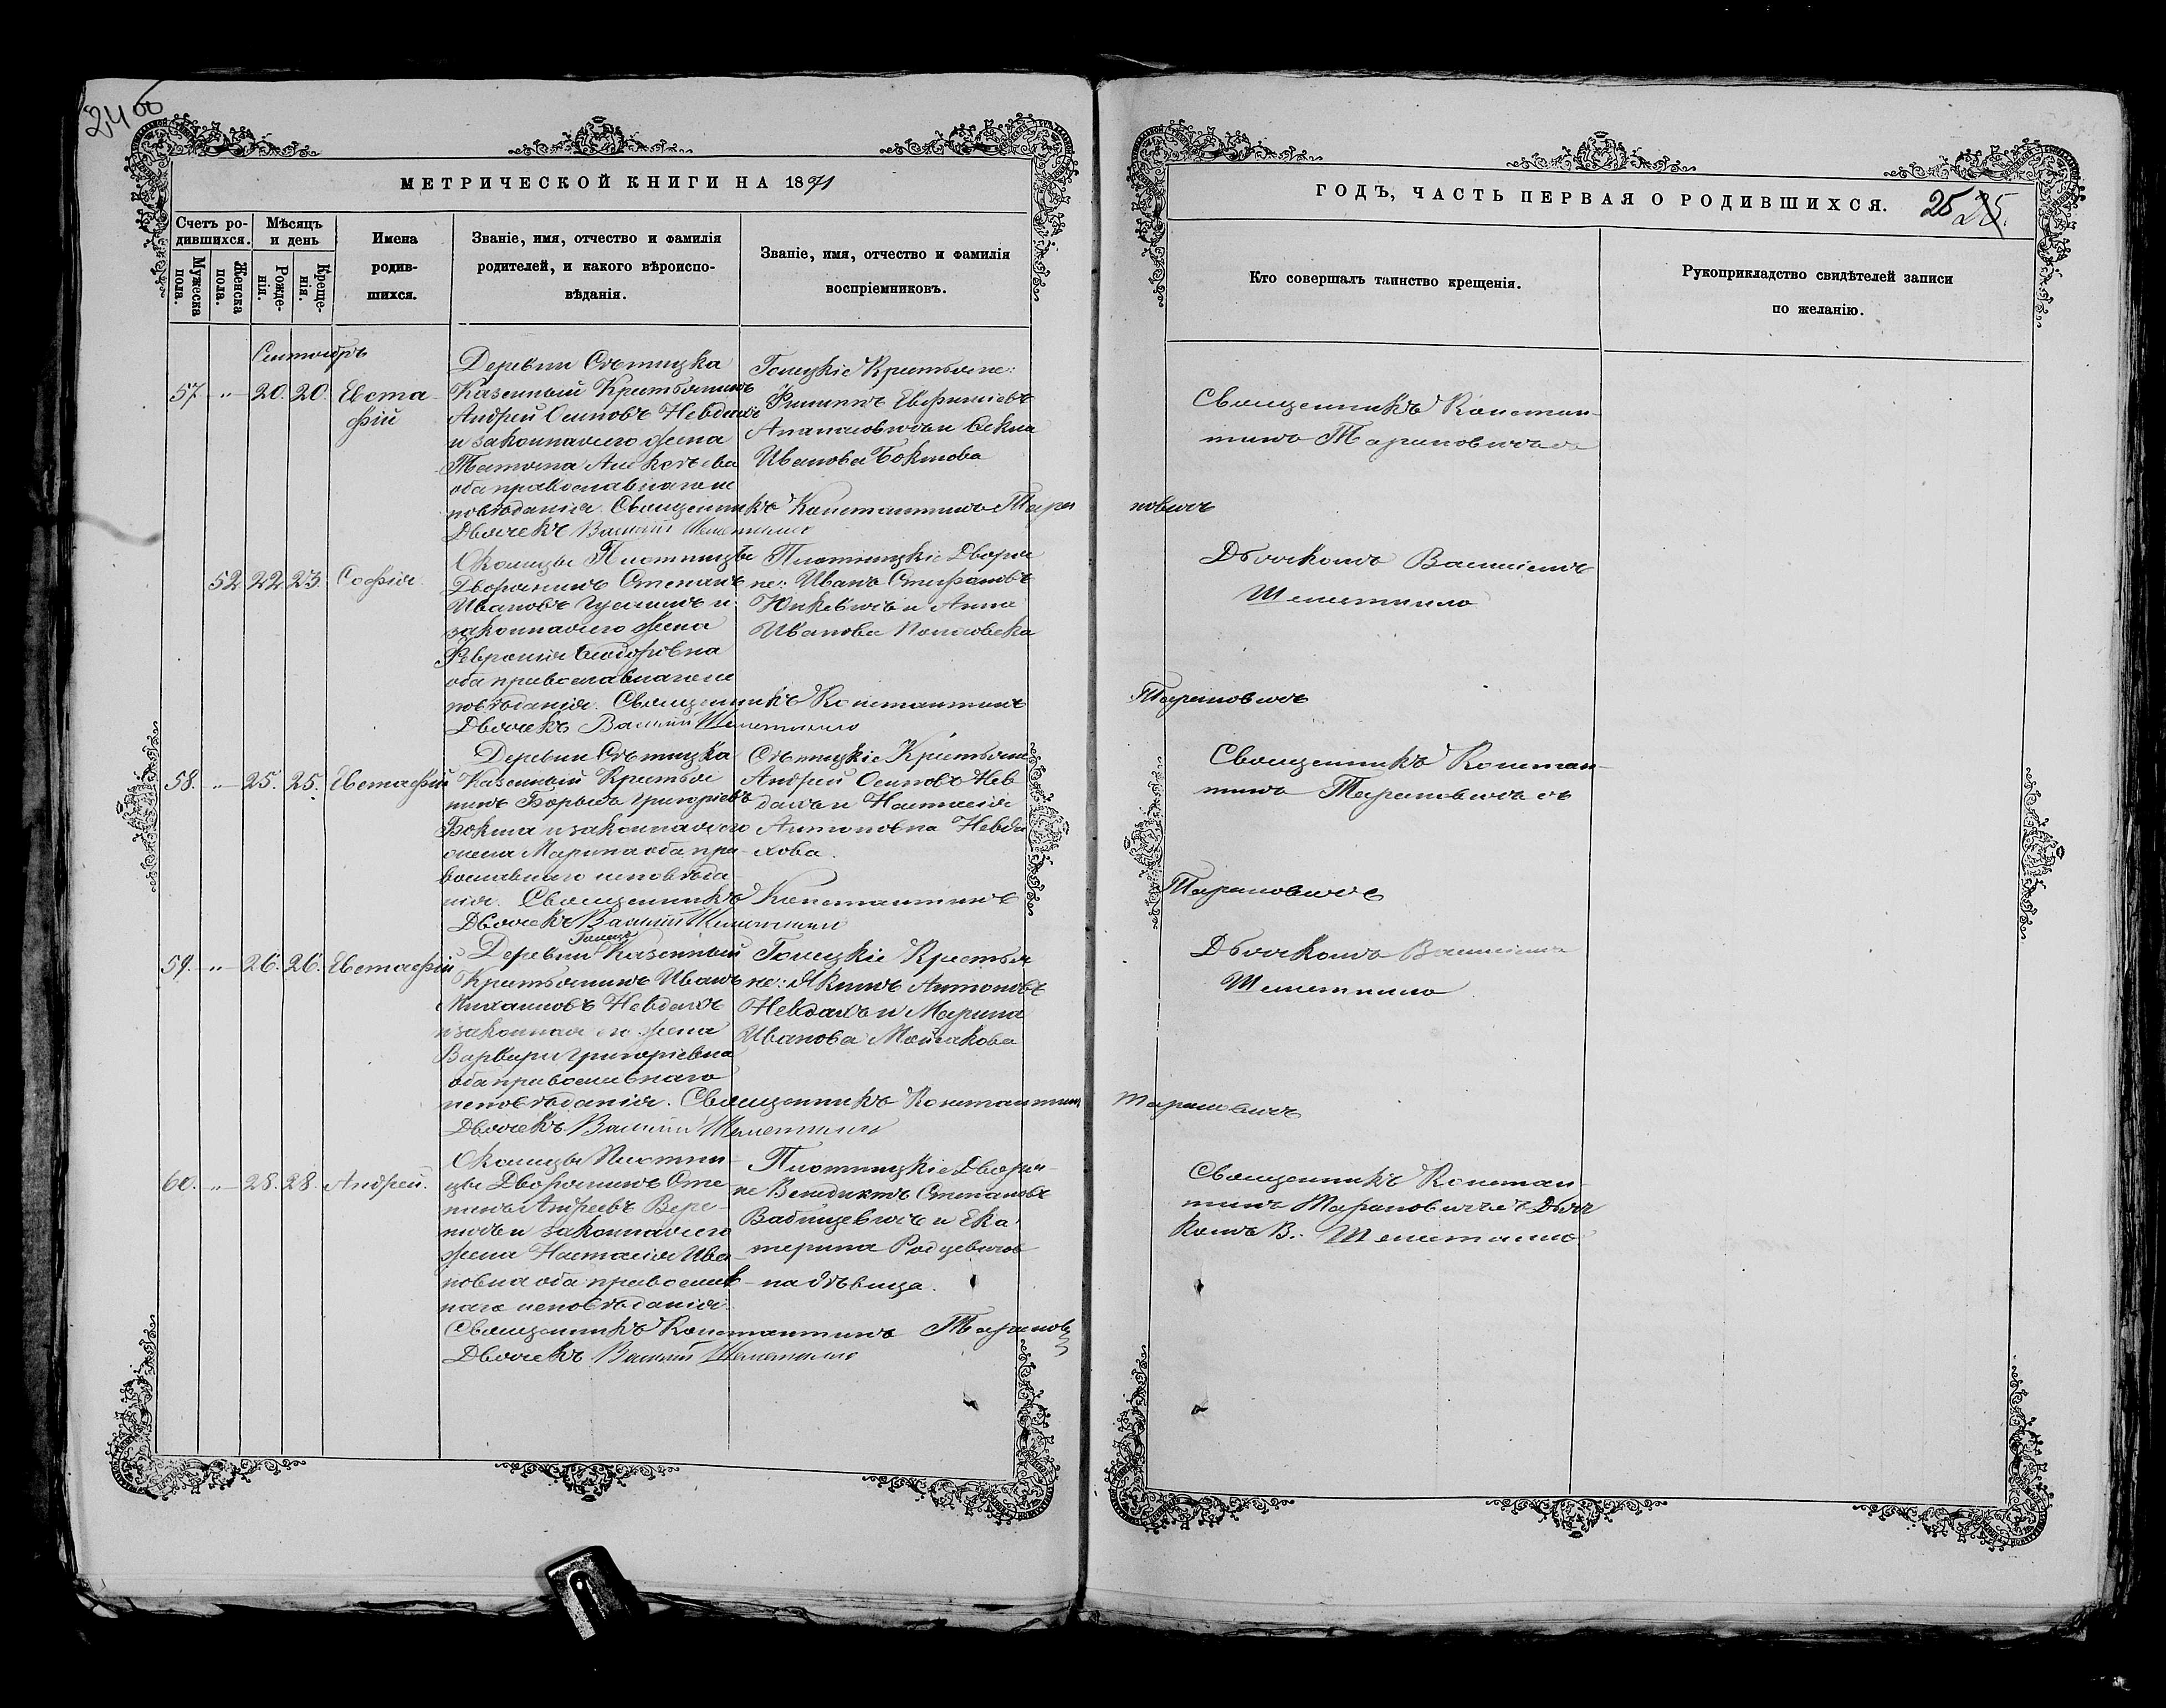 24 об
МЕТРИЧЕСКОЙ КНИГИ НА 1871
Счетъ ро-
дившихся.
Мѣсяцъ
и день
Мужеска
пола.
Женска
пола.
Рожде-
нія.
Креще-
нія.
Имена
родив-
шихся.
Званіе, имя, отчество и фамилія
родителей, и какого вѣроиспо-
вѣданія.
Званіе, имя, отчество и фамилія
воспріемниковъ.
Сентябрь
57 " 20. 20. Евста-
фій
Деревни Сѣтицка
Казенный Крестьянинъ
Андрей Осиповъ Невдахъ
и законная его жена
Татьяна Алексѣева
оба православнаго ис
повѣданія. Священникъ Константинъ Тара
Дьячекъ Василій Шеметилло
Голецкіе Крестьяне:
Филиппъ Ефимовъ
и Ѳекла
Иванова Бокшова
52 22 23. Софія
Околицы Плотницы
Дворянинъ Степанъ
Ивановъ и
законная его жена
Февронія Ѳеодоровна
оба православнаго ис
повѣданія. Священникъ Константинъ
Дьячекъ Василій Шеметилло
Плотницкіе Дворя
не: Иванъ Стефановъ
Юшкевичъ и Анна
Иванова
58. " 25. 25. Евстафій
Деревни Сѣтицка
Казенный Крестья
нинъ Борисъ Григорьевъ
Бокша и законная его
жена Марина оба пра-
вославнаго исповѣда
нія. Священникъ Константинъ
Дьячекъ Василій Шеметилло
Сѣтицкіе Крестьяне
Андрей Осиповъ Нев
дахъ и Настасія
Антоновна Невда
хова.
59. " 26. 26. Евстафій
Деревни Казенный
Крестьянинъ Иванъ
Михаиловъ Невдахъ
и законная его жена
Варвара Григоріевна
оба православнаго
исповѣданія. Священникъ Константинъ
Дьячекъ Василій Шеметилло
Голецкіе Крестья
не: Якимъ Антоновъ
Невдахъ и Марина
Иванова
60. " 28. 28. Андрей.
Околицы Плотни-
цы Дворянинъ Сте
панъ Андреевъ Вере-
ничъ и законная его
жена Настасія Ива
новна оба православ-
наго исповѣданія.
Священникъ Константинъ Таранов
Дьячекъ Василій Шеметилло
Плотницкіе Дворя-
не Венедиктъ Степановъ
и Ека-
терина Родцевичов
на дѣвица.
ГОДЪ, ЧАСТЬ ПЕРВАЯ О РОДИВШИХСЯ.
25 25.
Кто совершалъ таинство крещенія.
Рукоприкладство свидѣтелей записи
по желанію.
Священникъ Констан-
тинъ Тарановичъ съ
новичъ
Дьячкомъ Василіемъ
Шеметилло
Тарановичъ
Священникъ Констан-
тинъ Тарановичъ съ
Тарановичъ
Дьячкомъ Василіемъ
Шеметилло
Тарановичъ
Священникъ Констан-
тинъ Тарановичъ съ Дьяч
комъ В. Шеметилло